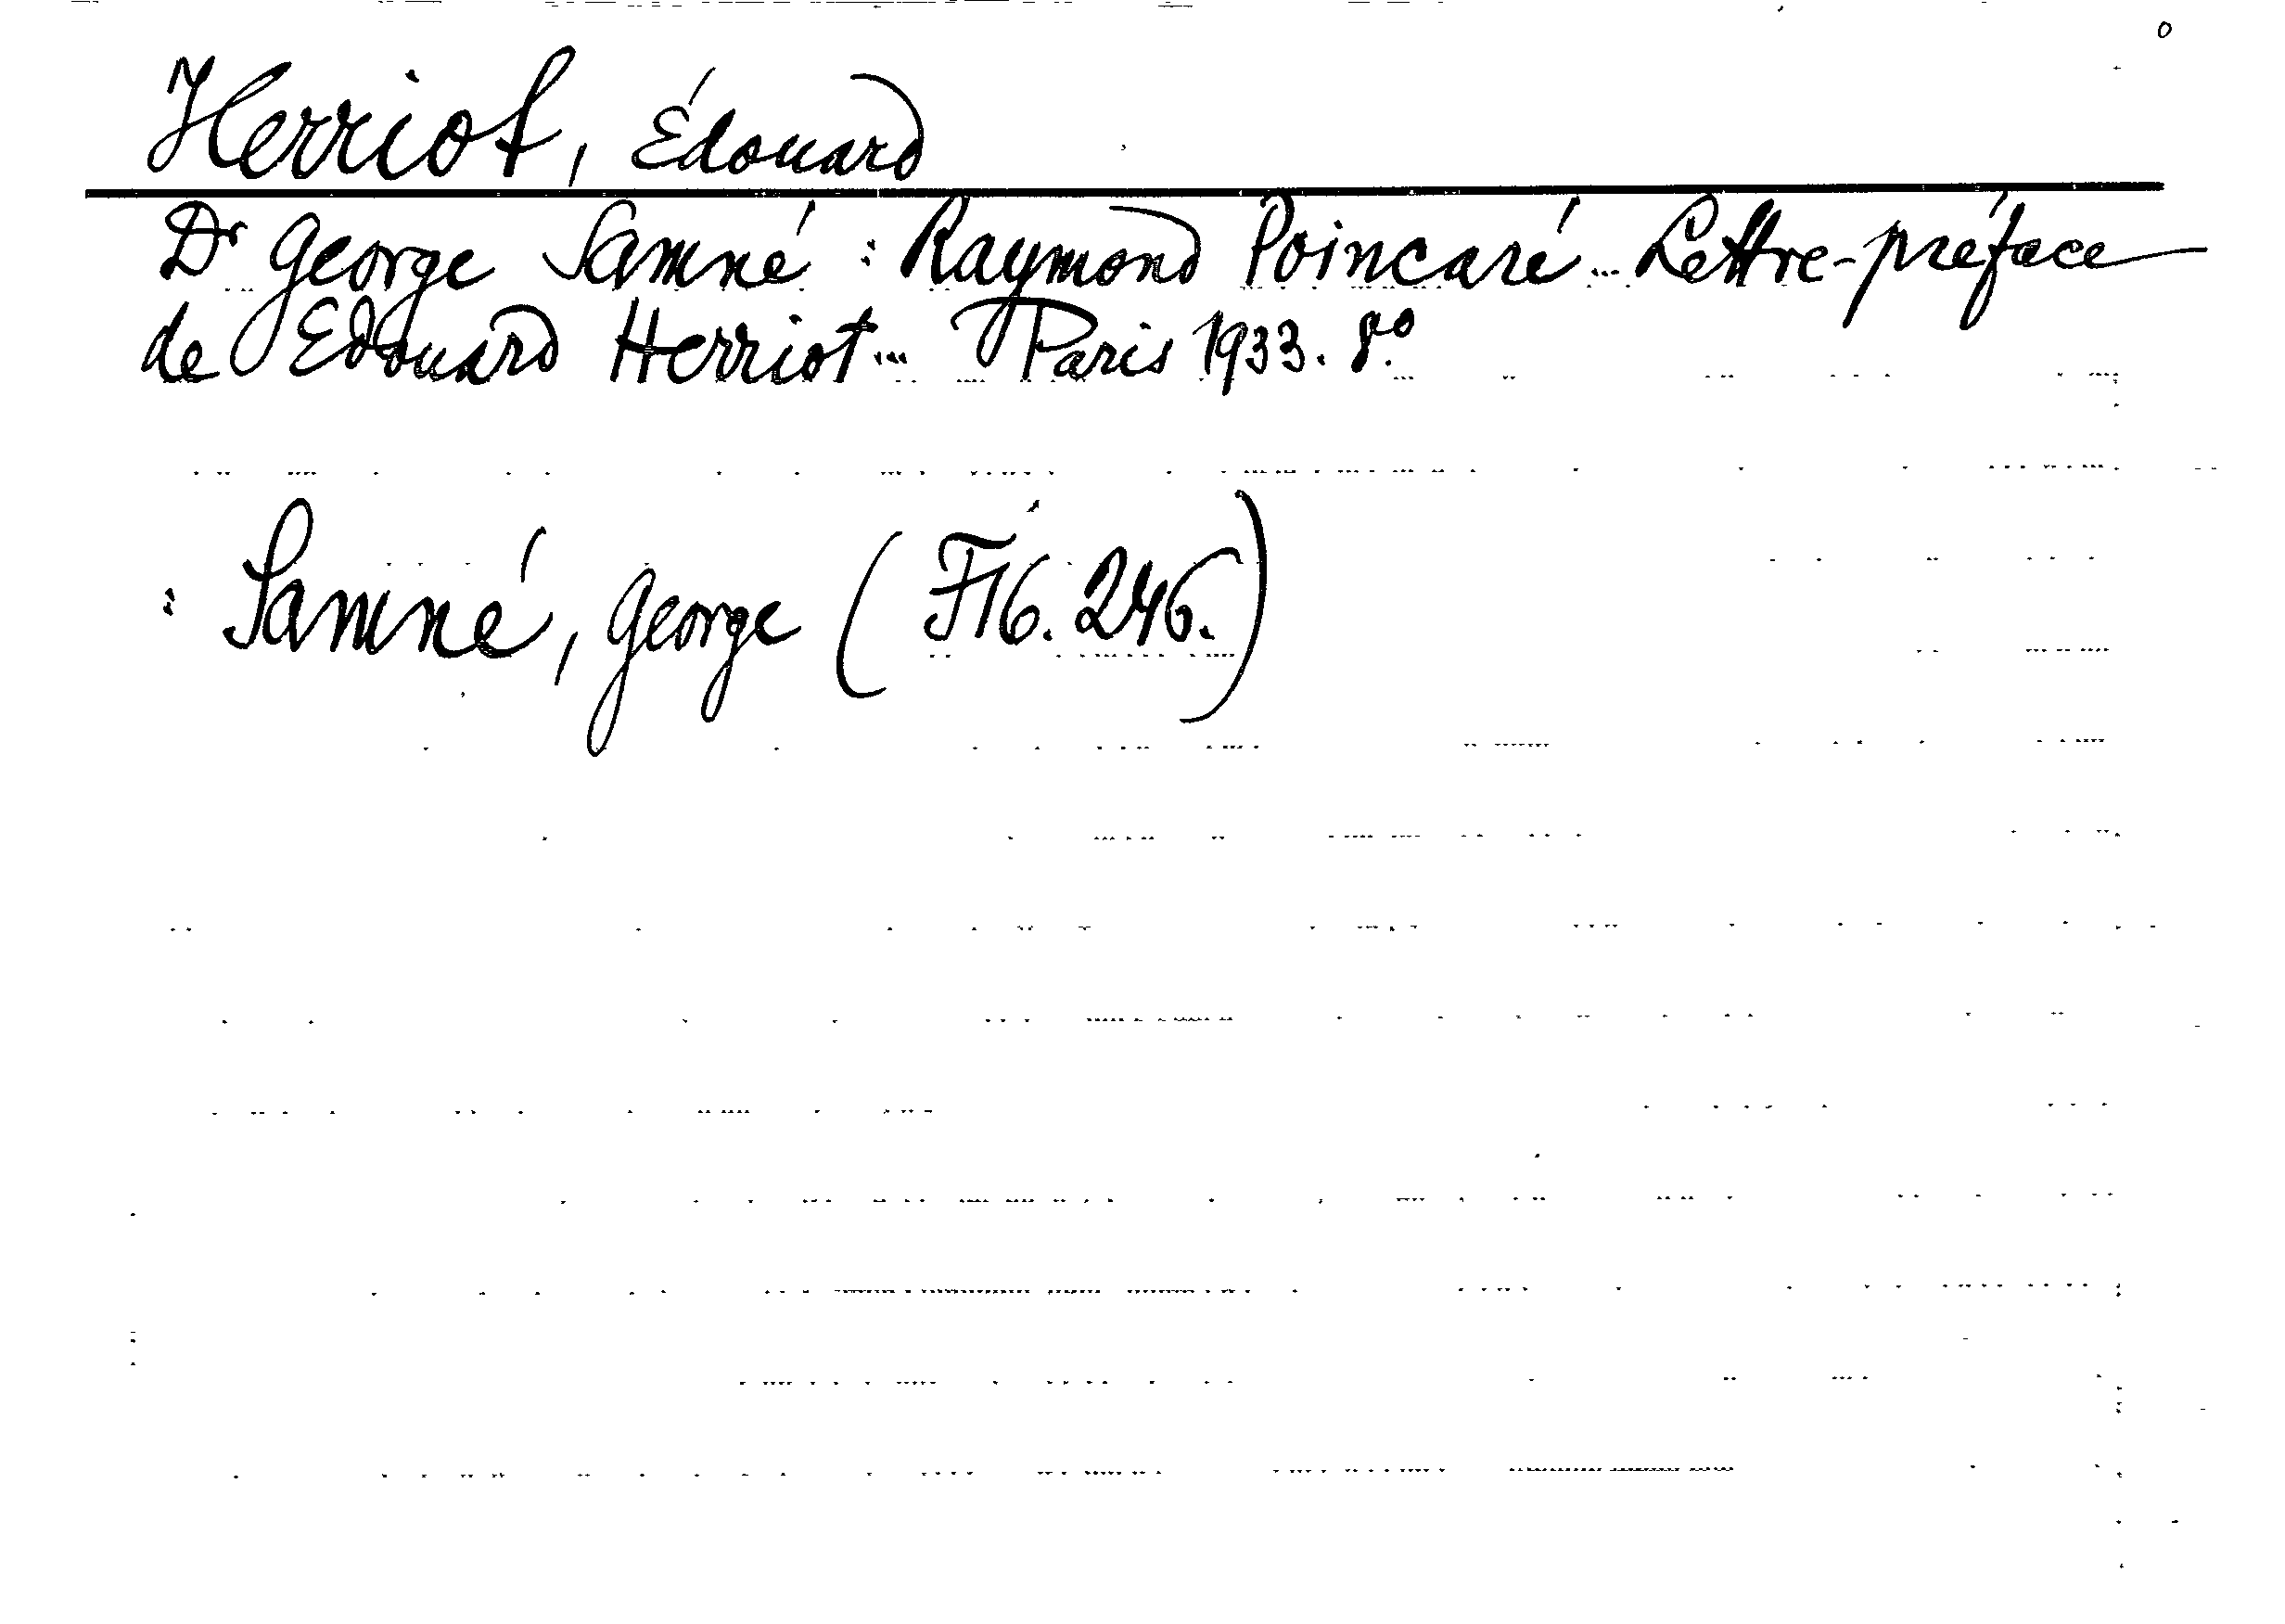 Herriot, Édouard
Dr George Samné : Raymond Poincaré... Lettre-préface
de Edouard Herriot... Paris 1933. 8.º
: Samné, George (F16. 246.)